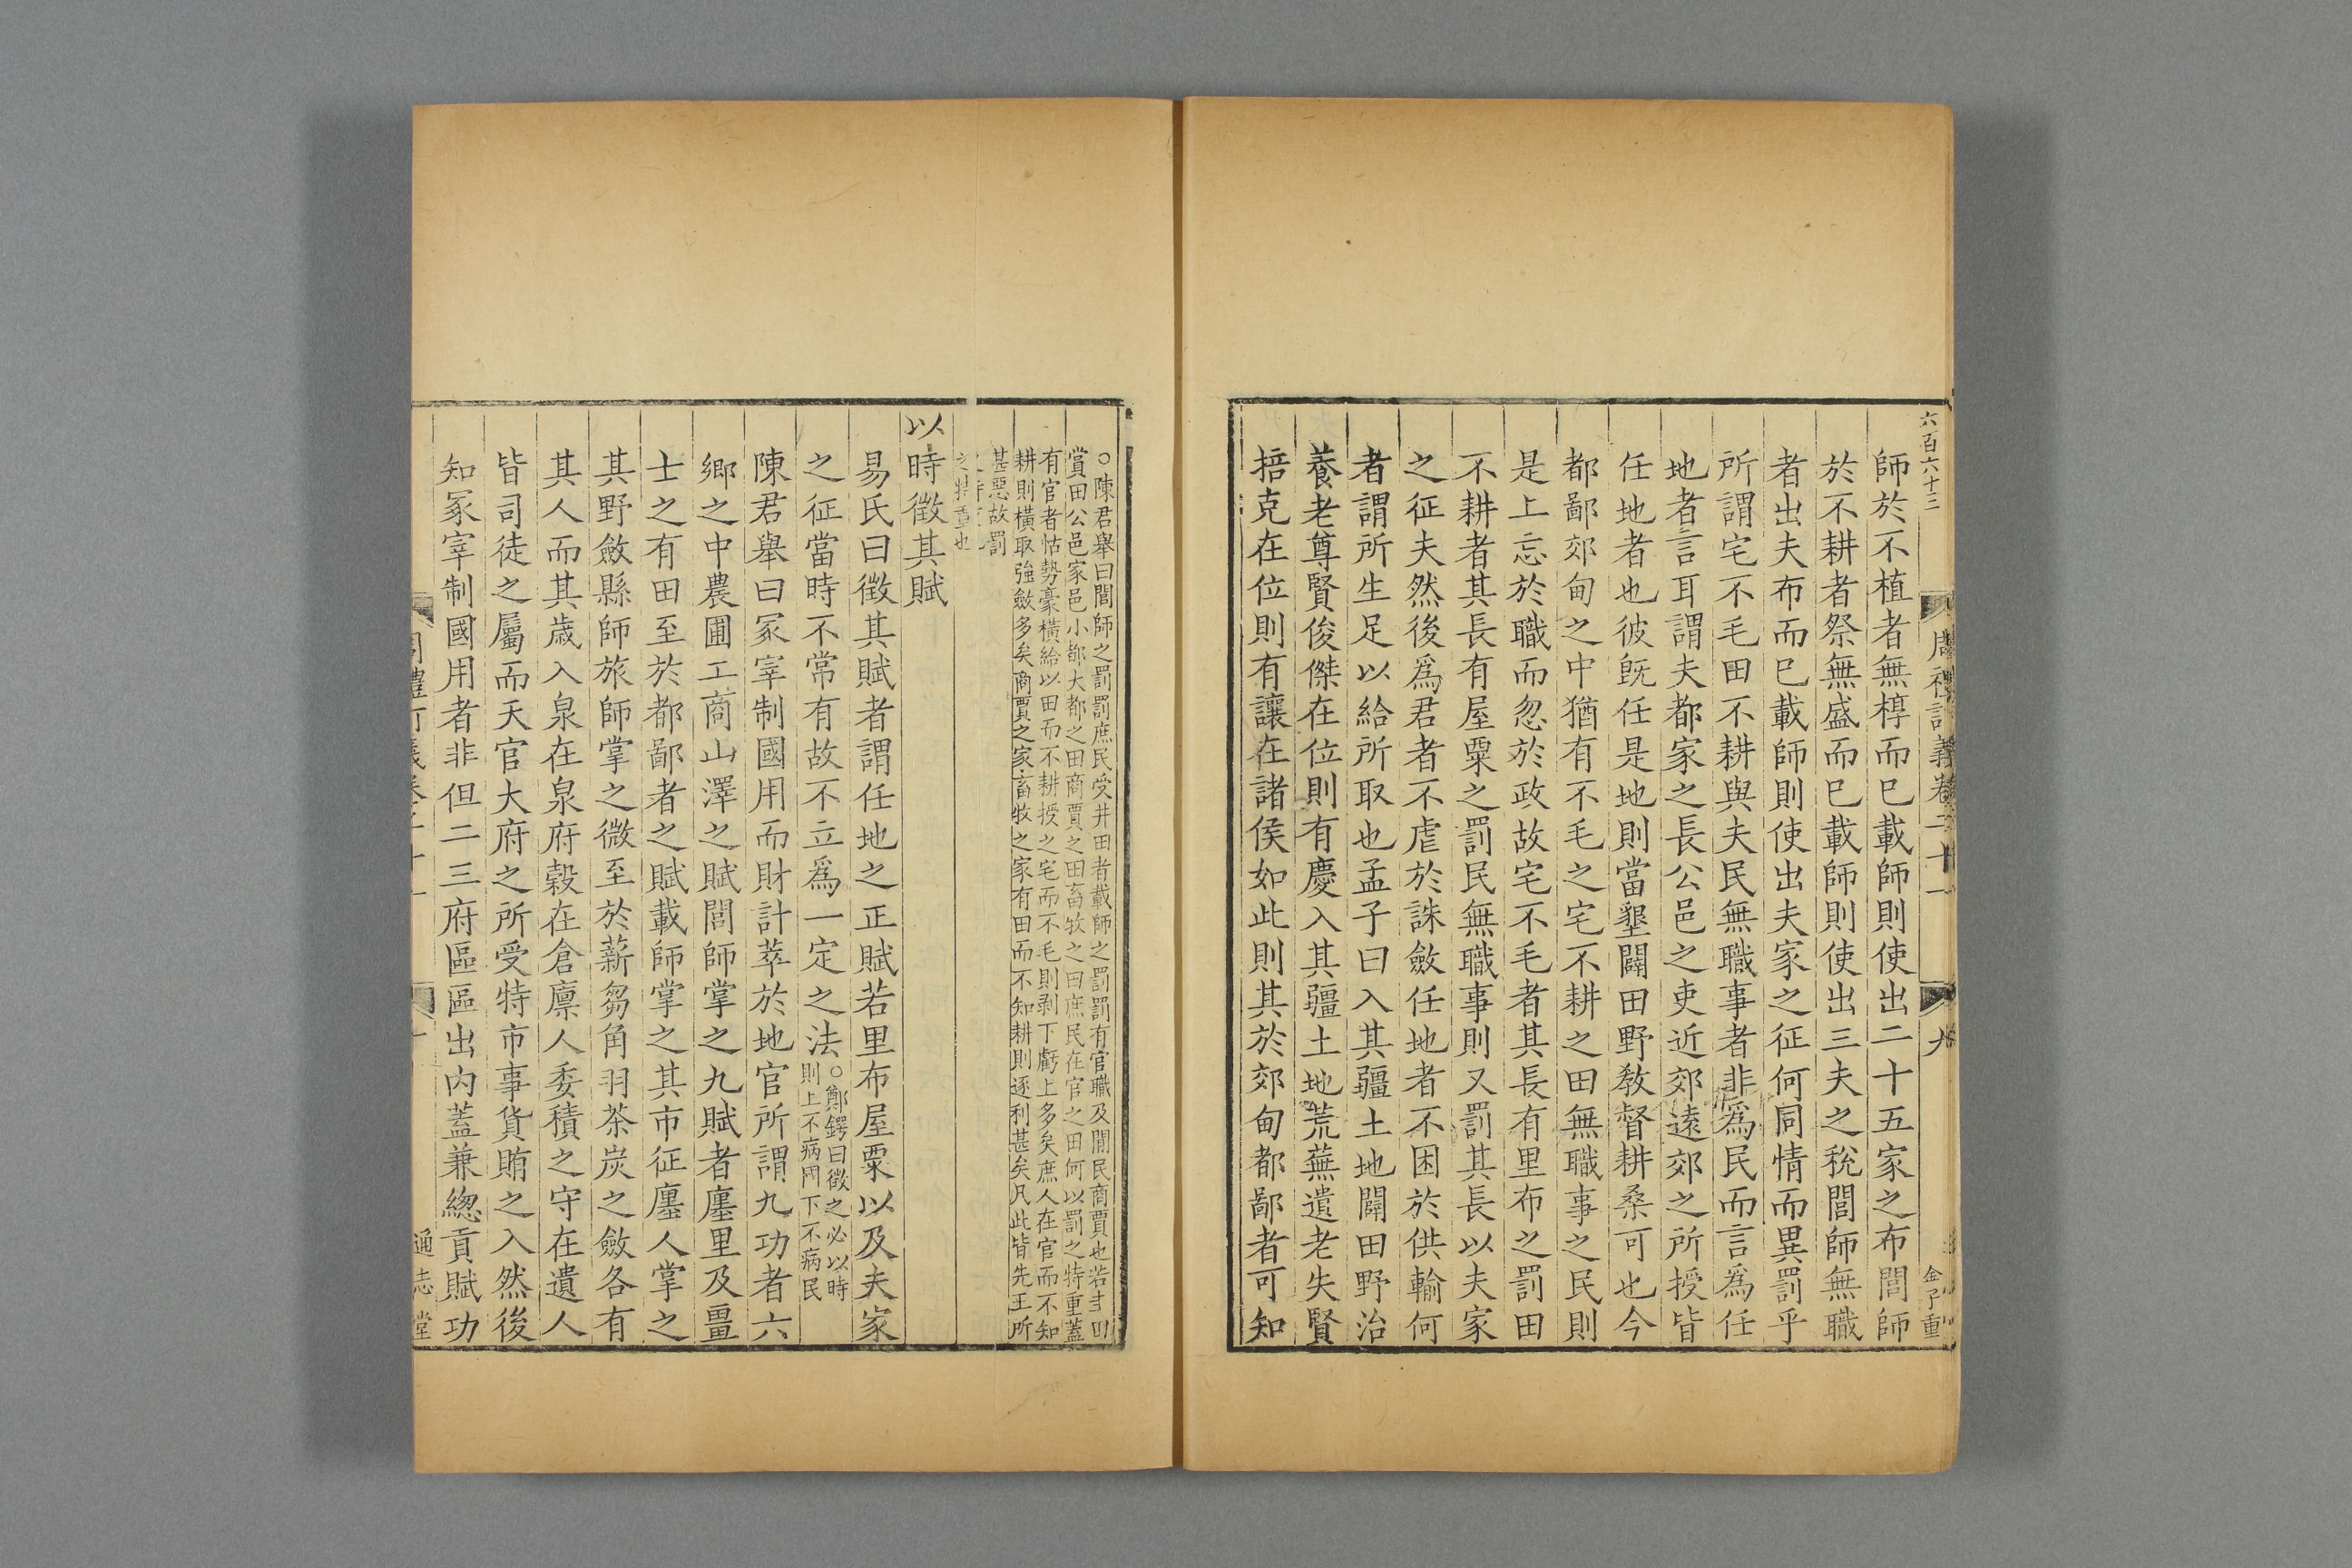 六百六十三
周禮訂義卷二十一
九
金子重
師於不植者無椁而已載師則使出二十五家之布閭師
於不耕者祭無盛而已載師則使出三夫之稅閭師無職
者出夫布而已載師則使出夫家之征何同情而異罰乎
所謂宅不毛田不耕與夫民無職事者非爲民而言爲任
地者言耳謂夫都家之長公邑之吏近郊遠郊之所授皆
任地者也彼旣任是地則當墾闢田野敎督耕桑可也今
都鄙郊甸之中猶有不毛之宅不耕之田無職事之民則
是上忘於職而忽於政故宅不毛者其長有里布之罰田
不耕者其長有屋粟之罰民無職事則又罰其長以夫家
之征夫然後爲君者不虐於誅斂任地者不困於供輸何
者謂所生足以給所取也孟子曰入其疆土地闢田野治
養老尊賢俊傑在位則有慶入其疆土地荒蕪遺老失賢
掊克在位則有讓在諸侯如此則其於郊甸都鄙者可知
○陳君舉曰閭師之罰罰庶民受井田者載師之罰罰有官職及閒民商賈也若士田
賞田公邑家邑小都大都之田商賈之田畜牧之田庶民在官之田何以罰之特重蓋
有官者怙勢豪橫給以田而不耕授之宅而不毛則剥下虧上多矣庶人在官而不知
耕則橫取強斂多矣商賈之家畜牧之家有田而不知耕則逐利甚矣凡此皆先王所
甚惡故罰
之特重也
以時徵其賦
易氏曰徵其賦者謂任地之正賦若里布屋粟以及夫家
之征當時不常有故不立爲一定之法○鄭鍔曰徵之必以時
則上不病罔下不病民
陳君舉曰冢宰制國用而財計萃於地官所謂九功者六
鄉之中農圃工商山澤之賦閭師掌之九賦者廛里及畺
士之有田至於都鄙者之賦載師掌之其市征廛人掌之
其野斂縣師旅師掌之微至於薪芻角羽荼炭之斂各有
其人而其歲入泉在泉府穀在倉廩人委積之守在遺人
皆司徒之屬而天官大府之所受特市事貨賄之入然後
知冢宰制國用者非但二三府區區出內蓋兼緫貢賦功
通志堂